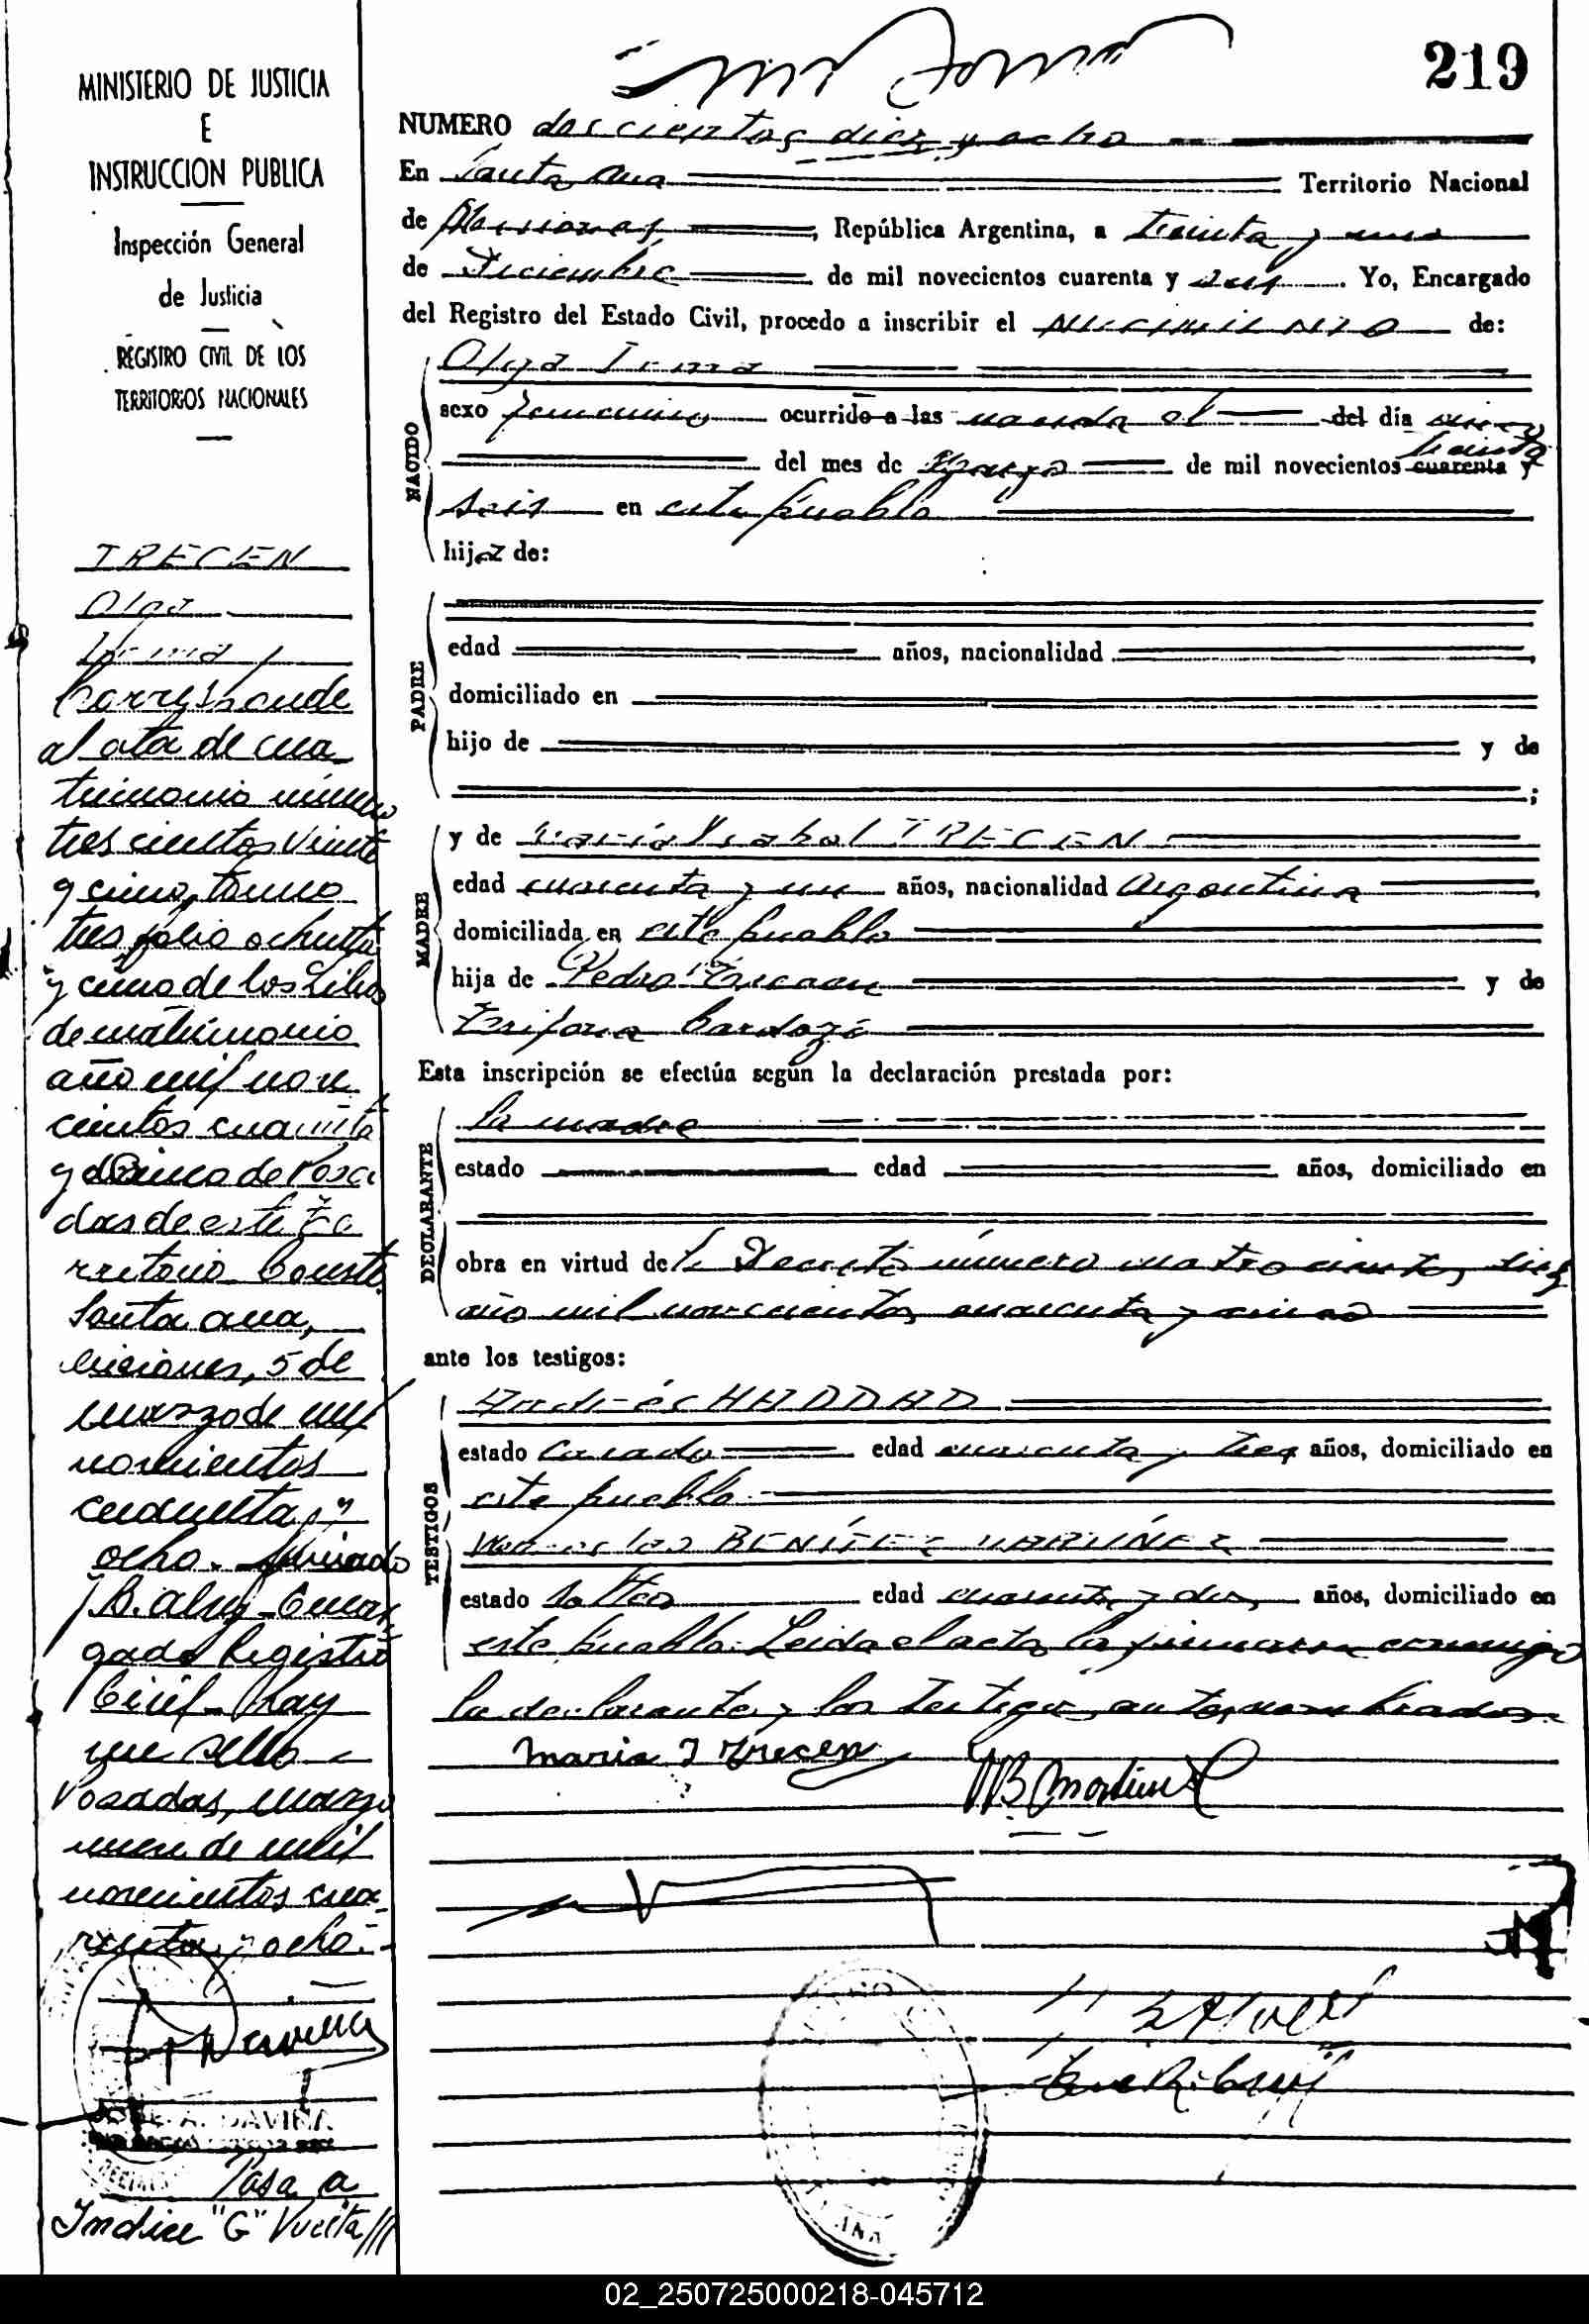 219
MINISTERIO DE JUSTICIA
E
INSTRUCCION PUBLICA
Inspección General
de Justicia
REGISTRO CIVIL DE LOS
TERRITORIOS NACIONALES
TRECEN
Olga
Irma
Corresponde
al ata de ma
trimonio número
tres cientos veinte
y cinco, tomo
tres folio ochenta
y cinco de los Libros
de matrimonio
año mil nove
cientos cuarenta
y cinco de Posa
das de este Te
rritorio Conste
Santa Ana,
Misiones, 5 de
marzo de mil
novecientos
cuarenta y
ocho. Firmado
J.B. Encar
gado Registro
Civil - hay
un sello -
Posadas, marzo
de mil
novecientos cua
renta y ocho.-
JOSE A. DAVIÑA
Pasa a
Indice "G" Vuelta ///
NUMERO doscientos diez y ocho
En Santa Ana Territorio Nacional
de Misiones, República Argentina, a treinta y uno
de Diciembre de mil novecientos cuarenta y seis. Yo, Encargado
del Registro del Estado Civil, procedo a inscribir el NACIMIENTO de:
NACIDO
Olga Irma
sexo femenino ocurrido a las nacida el del día cinco
del mes de Mayo de mil novecientos cuarenta y treinta
seis en este pueblo
hija de:
PADRE
edad años, nacionalidad
domiciliado en
hijo de y de
;
MADRE
y de María Isabel TRECEN
edad cuarenta y un años, nacionalidad Argentina
domiciliada en este pueblo
hija de Pedro y de
Cardozo
Esta inscripción se efectúa según la declaración prestada por:
DECLARANTE
la madre
estado edad años, domiciliado en
obra en virtud de l. Decreto número cuatrocientos diez
año mil novecientos cuarenta y cinco
ante los testigos:
TESTIGOS
Andrés HADDAD
estado casado edad cuarenta y tres años, domiciliado en
este pueblo
BENITEZ MARTINEZ
estado soltero edad cuarenta y dos años, domiciliado en
este pueblo. Leida el acta la firmaron conmigo
la declarante y los testigos antenombrados.
Maria I Trecen
02_250725000218-045712